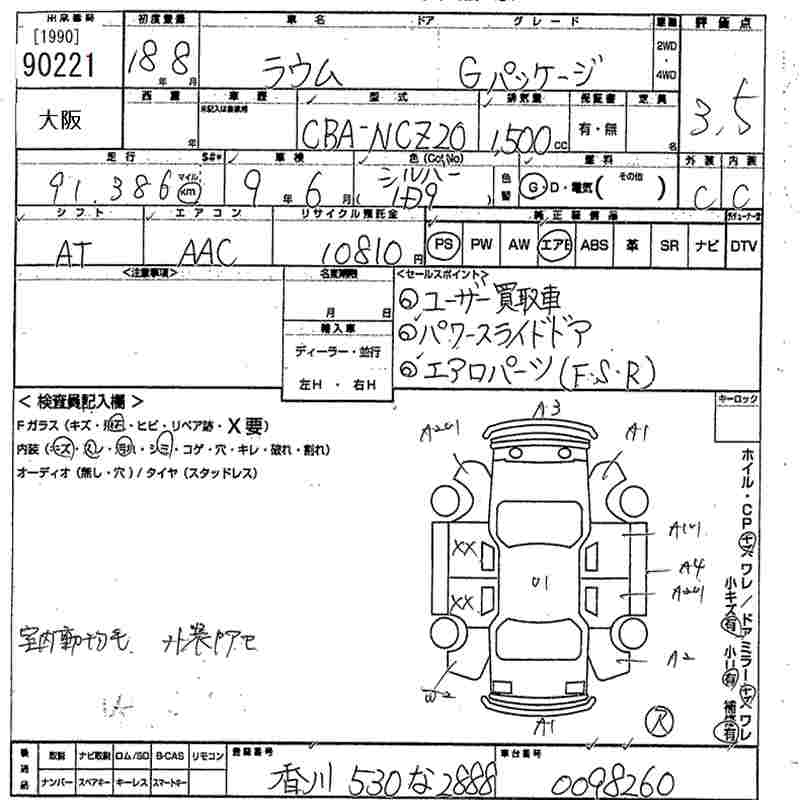 出品番号 初度登録 車名 ドア グレード 車種 評価点
[1990]
90221
18年 8月 ラウム Gパッケージ 2WD・4WD 3.5
大阪
西暦 年 車歴 未記入は自家用 型式 CBA-NCZ20 排気量 1,500cc 保証書 有・無 定員 名
走行 91,386 マイル km S#* 車検 9年6月 色(Col,No) シルバー (1E9) 色替 燃料 G・D・電気( その他 ) 外装 C 内装 C
シフト エアコン リサイクル預託金 純正装備品
AT AAC 10810円 PS PW AW エアB ABS 革 SR ナビ DTV
<注意事項> 名変期限 月 日
輸入車
ディーラー・並行
左H・右H
<セールスポイント>
ユーザー買取車
パワースライドドア
エアロパーツ(F.S.R)
<検査員記入欄> キーロック
Fガラス(キズ・飛石・ヒビ・リペア跡・X要)
内装(キズ・スレ・汚れ・シミ・コゲ・穴・キレ・破れ・割れ)
オーディオ(無し・穴)/タイヤ(スタッドレス)
A3
A1
XX
A4
XX
U1
A2
W2
A1
R
室内動物毛 外装色アセ
ホイル・CPキズワレ/ドアミラーキズワレ
小キズ有 小凹有 補修有
後送品 取説 ナビ取説 ロム/SD B-CAS リモコン
ナンバー スペアキー キーレス スマートキー
登録番号 香川 530 な 2888
車台番号 0098260